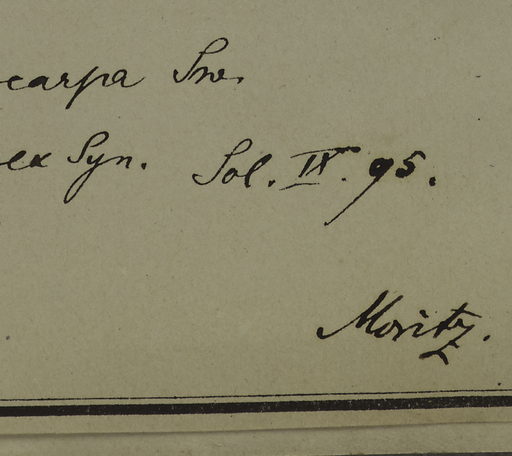 carpa Swe.
ex Syn. Sol. IX. 95.
Moritz.